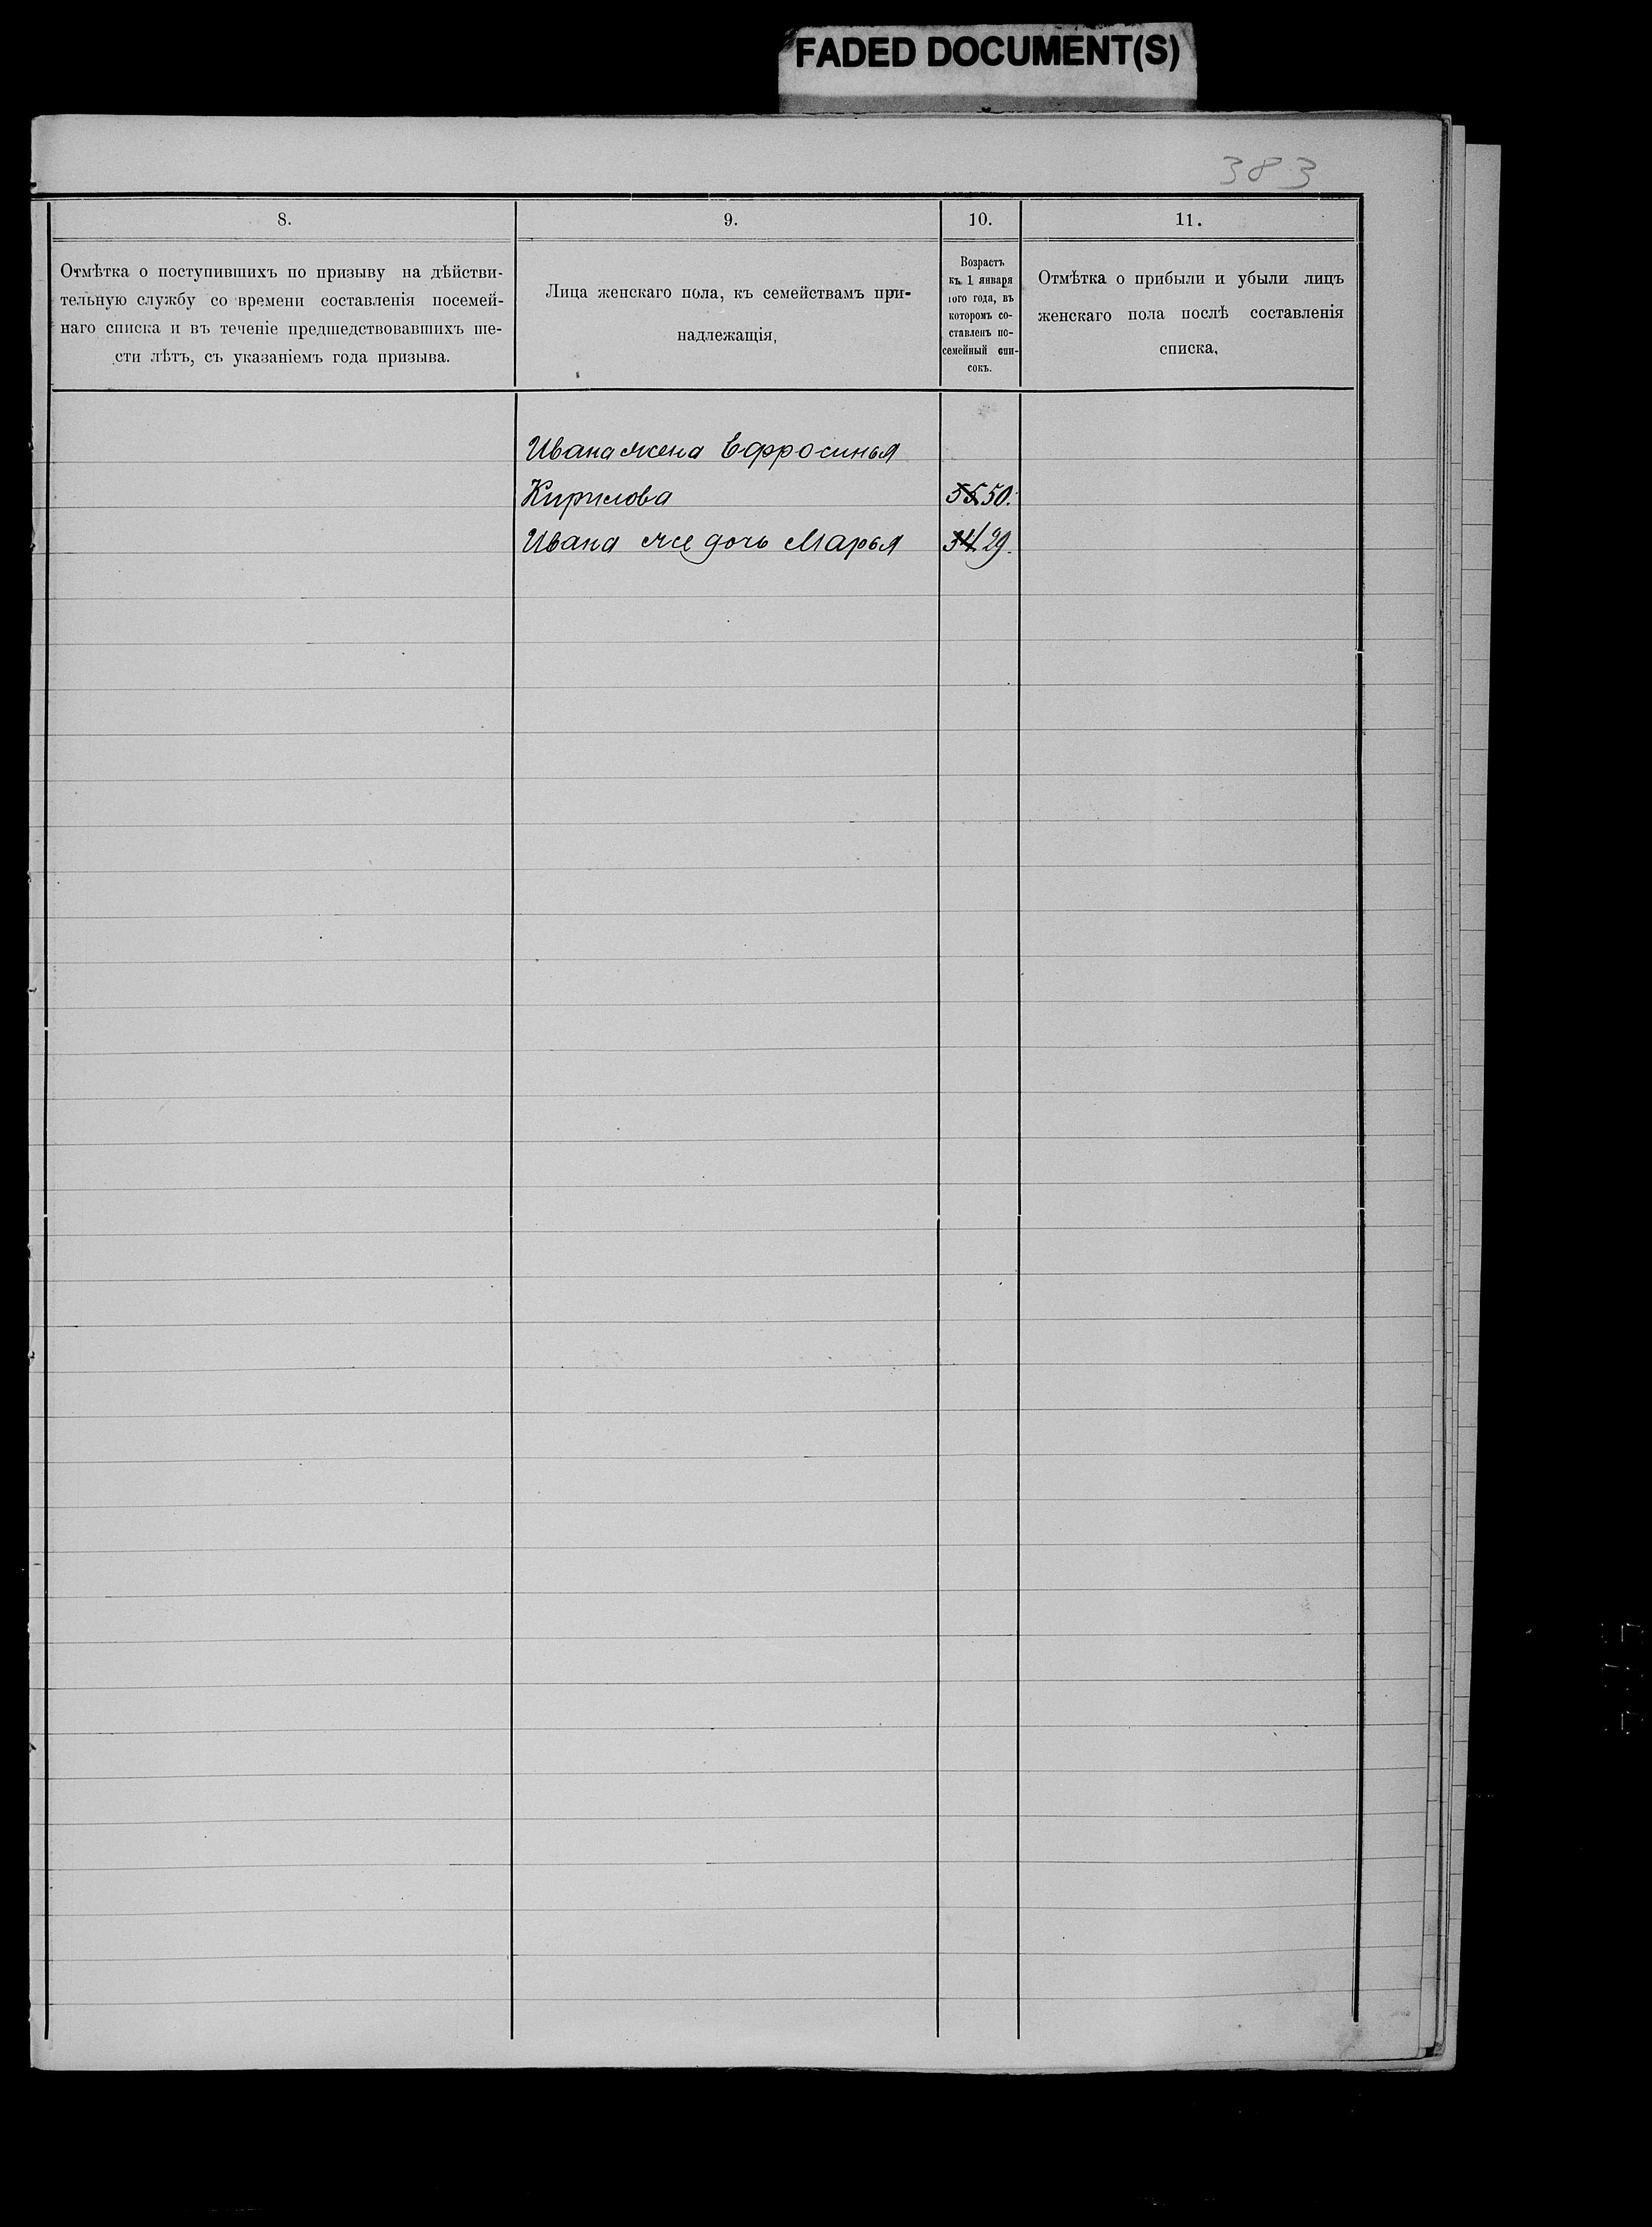 FADED DOCUMENT(S)
383
8.
9.
10.
11.
Отмѣтка о поступившихъ по призыву на дѣйстви-
тельную службу со времени составленія посемей-
наго списка и въ теченіе предшедствовавшихъ ше-
сти лѣтъ, съ указаніемъ года призыва.
Лица женскаго пола, къ семействамъ при-
надлежащія,
Возрастъ
къ 1 января
того года, въ
которомъ со-
ставленъ по-
семейный спи-
сокъ.
Отмѣтка о прибыли и убыли лицъ
женскаго пола послѣ составленія
списка,
Ивана жена Ефросинья
Кирилова 55 50.
Ивана же дочь Марья 34 29.